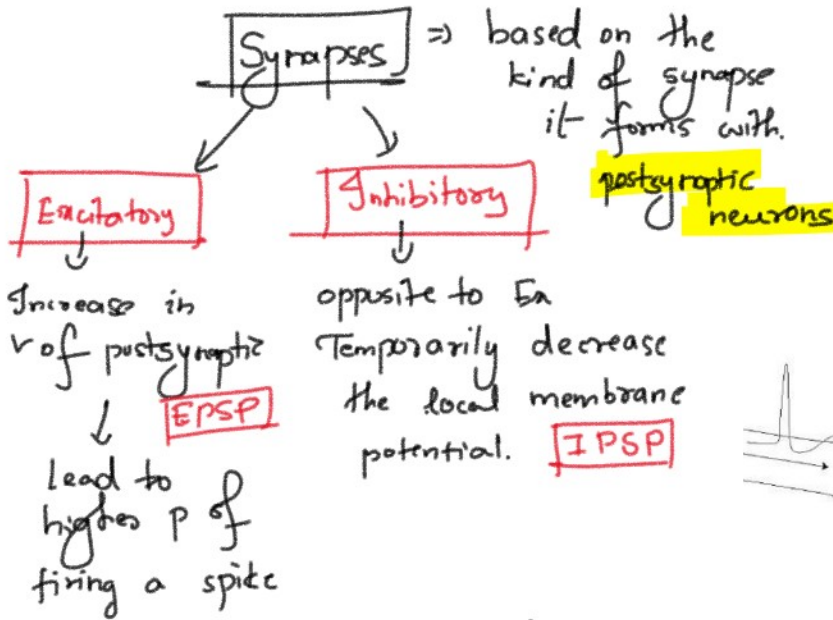 Synapses => based on the
kind of synapse
it forms with.
postsynaptic
neurons
Excitatory
Inhibitory
Increase in
v of postsynaptic
EPSP
lead to
higher p of
firing a spike
opposite to Ex
Temporarily decrease
the local membrane
potential. IPSP